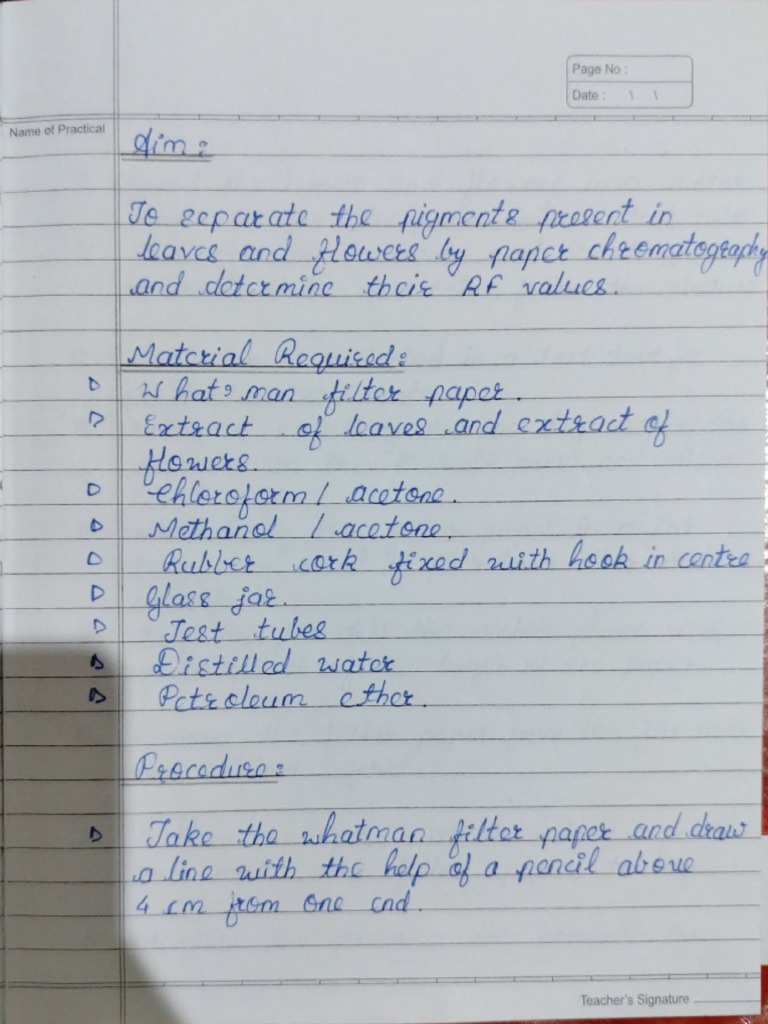 Page No :
Date : \ \
Name of Practical
Aim :
To separate the pigments present in
leaves and flowers by paper chromatography
and determine their RF values.
Material Required :
What's man filter paper.
Extract of leaves and extract of
flowers.
Chloroform / acetone.
Methanol / acetone.
Rubber cork fixed with hook in centre
Glass jar.
Test tubes
Distilled water
Petroleum ether.
Procedure :
Take the whatman filter paper and draw
a line with the help of a pencil above
4 cm from one end.
Teacher's Signature